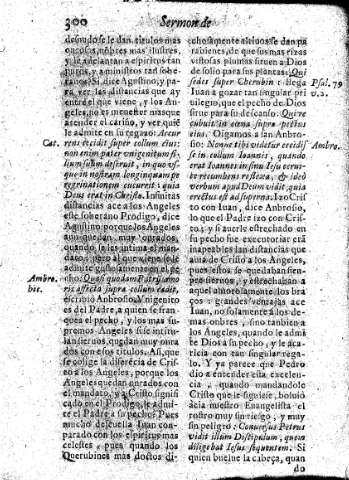 300 Sermon de
desnudo se le dan titulos mas
quiosos, nombres mas ilustres,
y le adelantan a espiritus tan
puros, y a ministros tan sobe-
ranos? Si, dize Agustino, y pa-
ra ver las distancias que ay
entre el que viene, y los Ange-
les, no es menester mas que
ascender el cariño, y ver quiẽ
le admite en su regazo: Accur-
Cat. rens cecidit super collum eius:
non enim pater vnigenitum fi-
lium suum deseruit, in quo vs-
que in nostram longinquam pe-
regrinationem cucurrit: quia
Deus erat in Christo. Infinitas
distancias ay de los Angeles a
este soberano Prodigo, dize
Agustino porque los Angeles
aun quedan muy
quando se les intima el man-
dato; pero al que viene se le
admite gustosamente en el pe-
Ambr. cho: Quasi quodam Patrij amo-
hic. ris affectu supra collum cadit,
escriuiò Ambrosio. Vnigenito
es del Padre, a quien se fran-
quea el pecho, y los mas su-
premos Angeles si se intitu-
lan sieruos, quedan muy onra-
dos con essos titulos. Assi, que
se colige la diferẽcia de Cristo
a los Angeles, porque los
Angeles quedan onrados con
el mandato, y a Cristo signifi-
cado en el Prodigo, le admi-
te el Padre a su pecho? Pues
mucho descuella Iuan com-
parado con los espiritus mas
celestes, pues quando los
Querubines mas doctos di-
chosamente altiuos se dan pa-
rabienes, de que sus mas rizas
vistosas plumas siruen a Dios
de solio para sus plantas: Qui
sedes super Cherubin: llega Psal. 79
Iuan a gozar tan singular pri- v. 2.
uilegio, que el pecho de Dios
sirue para su descanso: Qui re-
cubuit in cœna supra pectus
eius. Oigamos a san Ambro-
sio: Nonne tibi videtur cecidis- Ambro.
se in collum Ioannis, quando
erat Ioannes in sinu Iesu cerui-
ce recumbens reflexa, & ideò
verbum apud Deum vidit, quia
erectus est ad superna. Izo Cris-
to con Iuan, dize Ambrosio,
lo que el Padre izo con Cris-
to; y si auerle estrechado en
su pecho fue executoriar cõ
inapelables las distancias que
auia de Cristo a los Angeles,
pues estos se quedaban siem-
pre sieruos, y estrechaban a
aquel amorosamente los bra-
ços: grandes ventajas ace
Iuan, no solamente a los de-
mas onbres, sino tanbien a
los Angeles, quando le admi-
te Dios a su pecho, y le aca-
ricia con tan singular rega-
lo. Y ya parece que Pedro
diò a entender esta excelen-
cia, quando mandandole
Cristo que le siguiese, boluiò
acia nuestro Euangelista el
rostro muy sin riesgo, y muy
sin peligro: Conuersus Petrus
vidit illum Discipulum, quem
diligebat Iesus sequentem: Si
quien buelue la cabeça, quan
do